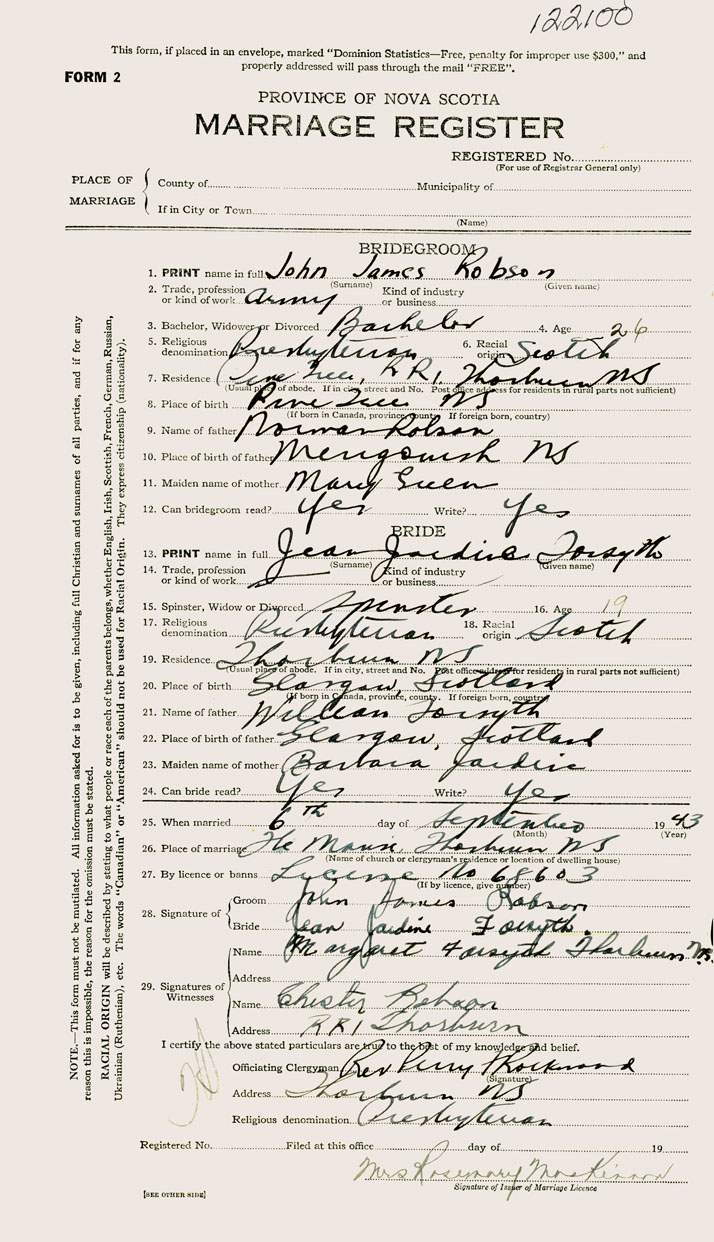 122100
This form, if placed in an envelope, marked "Dominion Statistics—Free, penalty for improper use $300," and
properly addressed will pass through the mail "FREE".
FORM 2
PROVINCE OF NOVA SCOTIA
MARRIAGE REGISTER
REGISTERED No.
(For use of Registrar General only)
PLACE OF MARRIAGE
County of Municipality of
If in City or Town
(Name)
BRIDEGROOM
1. PRINT name in full John James Robson
(Surname) (Given name)
2. Trade, profession or kind of work Army Kind of industry or business
3. Bachelor, Widower or Divorced Bachelor 4. Age 26
5. Religious denomination Presbyterian 6. Racial origin Scotch
7. Residence Pine Tree, RR1, Thorburn NS
(Usual place of abode. If in city, street and No. Post office address for residents in rural parts not sufficient)
8. Place of birth Pine Tree NS
(If born in Canada, province, county. If foreign born, country)
9. Name of father Norman Robson
10. Place of birth of father Merigomish NS
11. Maiden name of mother Mary Green
12. Can bridegroom read? Yes Write? Yes
BRIDE
13. PRINT name in full Jean Jardine Forsyth
(Surname) (Given name)
14. Trade, profession or kind of work Kind of industry or business
15. Spinster, Widow or Divorced Spinster 16. Age 19
17. Religious denomination Presbyterian 18. Racial origin Scotch
19. Residence Thorburn NS
(Usual place of abode. If in city, street and No. Post office address for residents in rural parts not sufficient)
20. Place of birth Glasgow, Scotland
(If born in Canada, province, county. If foreign born, country)
21. Name of father William Forsyth
22. Place of birth of father Glasgow, Scotland
23. Maiden name of mother Barbara Jardine
24. Can bride read? Yes Write? Yes
25. When married 6th day of September 1943
(Month) (Year)
26. Place of marriage The Manse Thorburn NS
(Name of church or clergyman's residence or location of dwelling house)
27. By licence or banns License No 68603
(If by licence, give number)
28. Signature of
Groom John James Robson
Bride Jean Jardine Forsyth.
29. Signatures of Witnesses
Name Margaret Forsyth Thorburn N.S.
Address
Name Chester Robson
Address RR1 Thorburn
I certify the above stated particulars are true to the best of my knowledge and belief.
Officiating Clergyman Rev Perry Rockwood
(Signature)
Address Thorburn NS
Religious denomination Presbyterian
Registered No. Filed at this office day of 19
Mrs Rosemary MacKinnon
Signature of Issuer of Marriage Licence
[SEE OTHER SIDE]
NOTE.—This form must not be mutilated. All information asked for is to be given, including full Christian and surnames of all parties, and if for any
reason this is impossible, the reason for the omission must be stated.
RACIAL ORIGIN will be described by stating to what people or race each of the parents belongs, whether English, Irish, Scottish, French, German, Russian,
Ukrainian (Ruthenian), etc. The words "Canadian" or "American" should not be used for Racial Origin. They express citizenship (nationality).